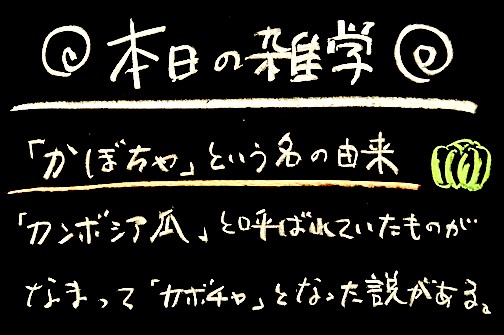 本日の雑学
「かぼちゃ」という名の由来
「カンボジア瓜」と呼ばれていたものが
なまって「カボチャ」となった説がある。